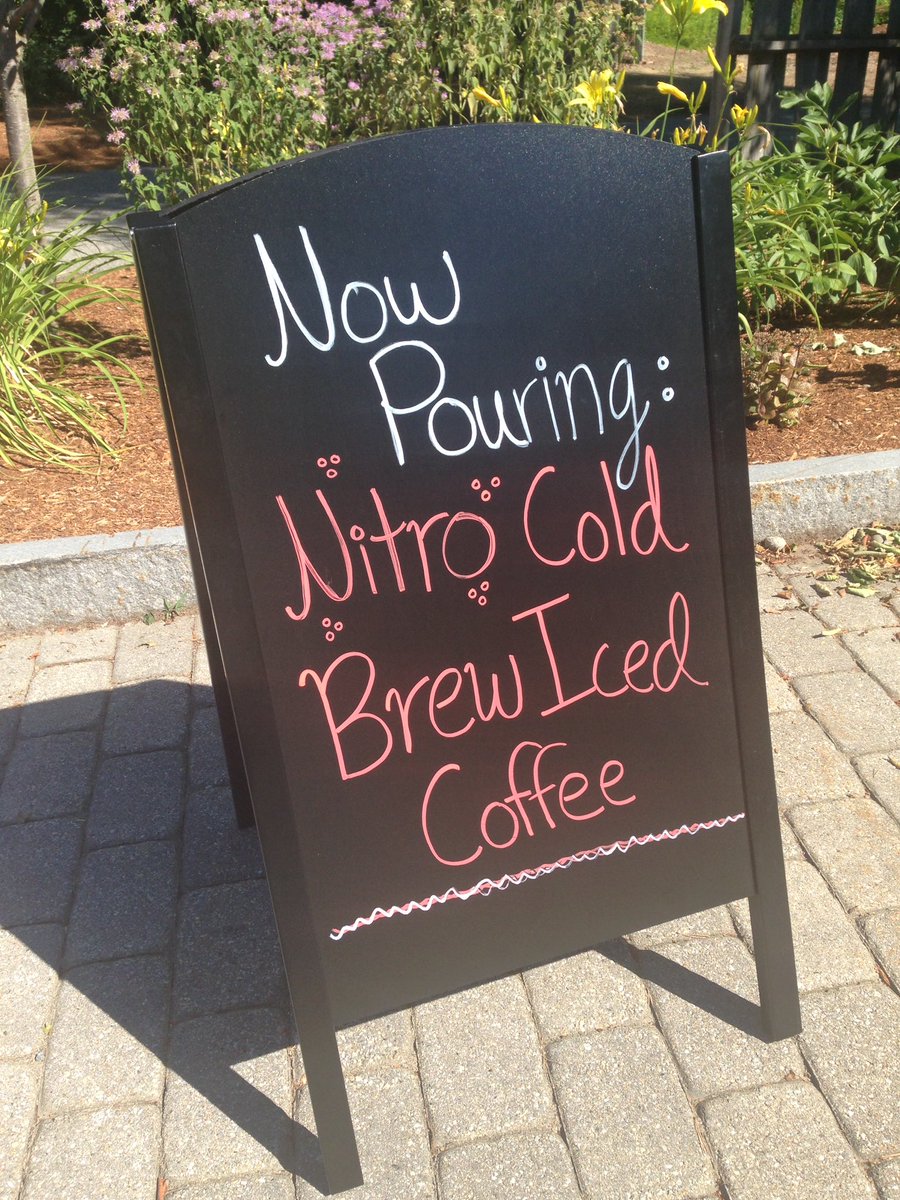 Now
Pouring:
Nitro Cold
Brew Iced
Coffee